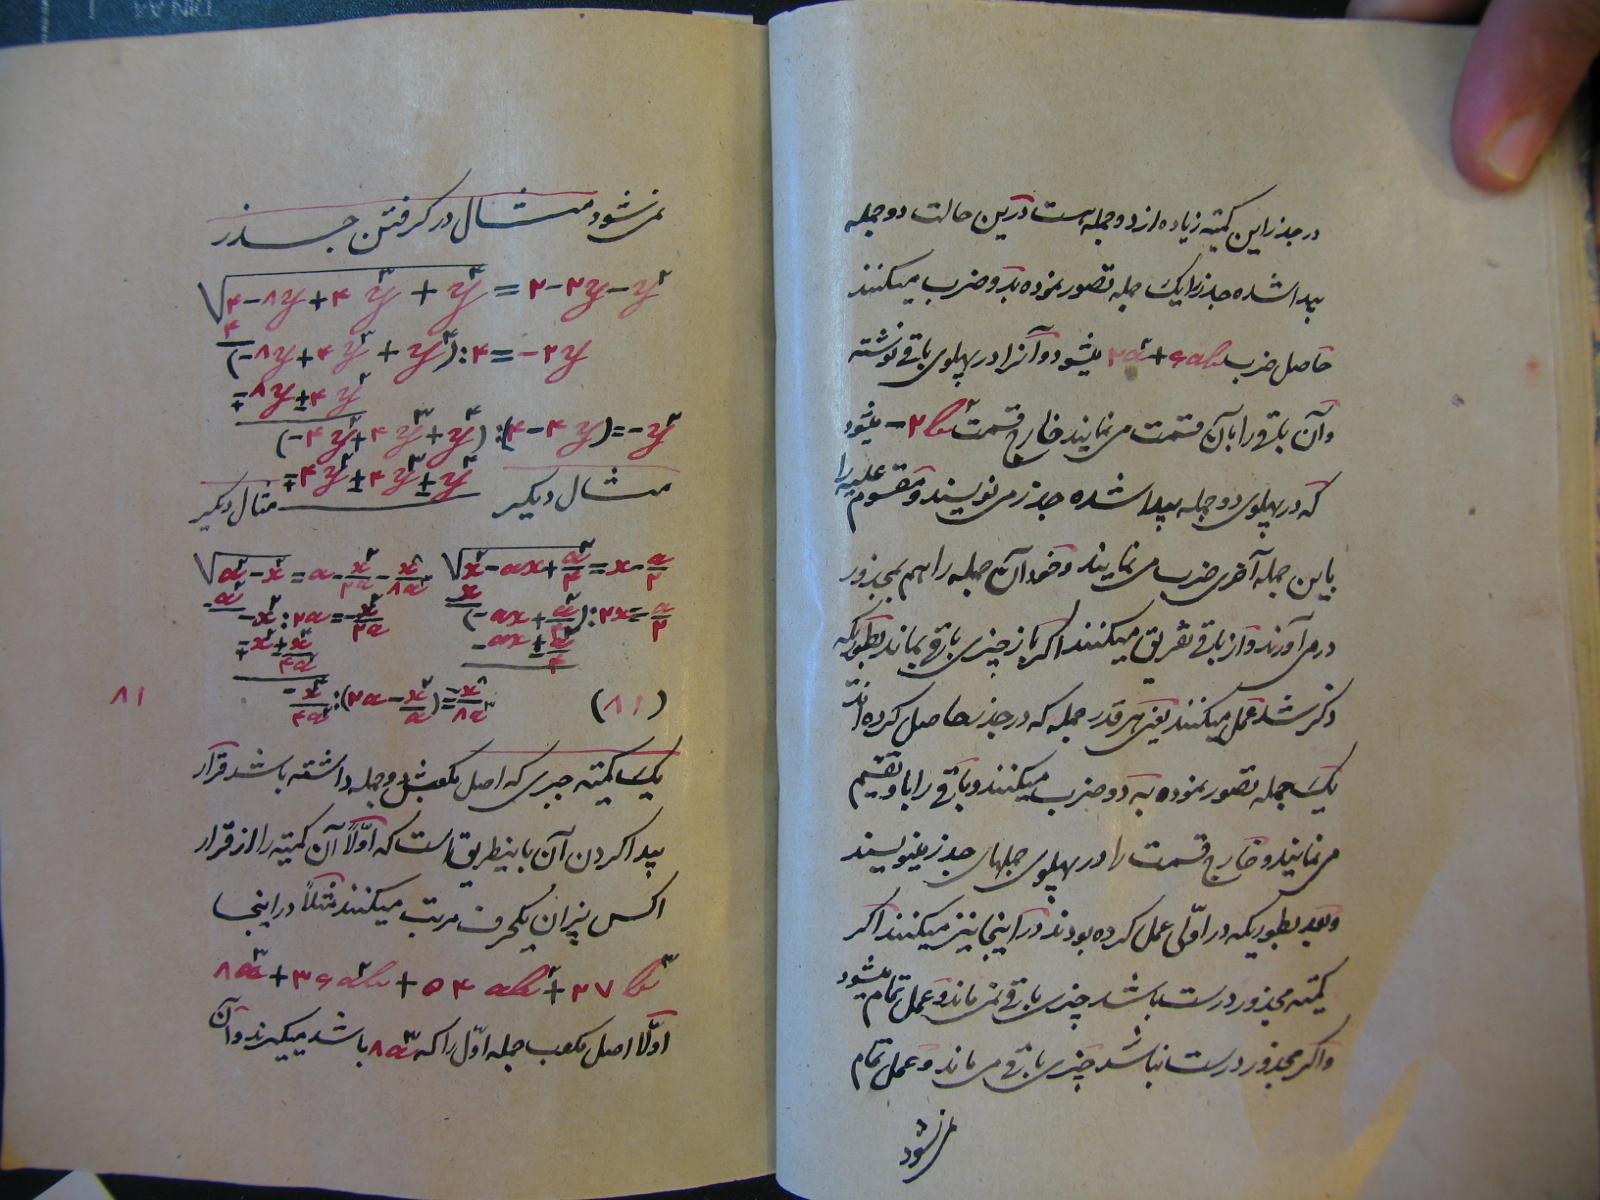 در جذر این کمیته زیاده از دو جمله است درین حالت دو جمله
پیدا شده جذر را یک جمله تصور نموده بدو ضرب میکنند
حاصل ضرب ۲a²+۶ab میشود و آنرا در پهلوی باقی نوشته
و آن باقی را بآن قسمت می نمایند خارج قسمت ۲b²− میشود
که در پهلوی دو جمله پیدا شده جذر می نویسند و مقسوم علیه را
باین جمله آخری ضرب می نمایند و خود آن جمله را هم بمجذور
در می آورند و از باقی تفریق میکنند اگر باز چیزی باقی بماند بطوریکه
ذکر شد عمل میکنند یعنی هر قدر جمله که در جذر حاصل کرده اند
یک جمله تصور نموده به دو ضرب میکنند و باقی را باو تقسیم
می نمایند و خارج قسمت را در پهلوی جملهای جذر مینویسند
و بعد بطوریکه در اولی عمل کرده بودند در اینجا نیز میکنند اگر
کمیته مجذور درست باشد چیزی باقی نمی ماند و عمل تمام میشود
و اگر مجذور درست نباشد چیزی باقی می ماند و عمل تمام
نمی شود
نمی شود مثال در گرفتن جذر
√۴−۸y+۴y³+y⁴ = ۲−۲y−y²
۴
(−۸y+۴y³+y⁴):۴=−۲y
∓۸y±۴y²
(−۴y²+۴y³+y⁴):(۴−۴y)=−y²
∓۴y²±۴y³±y⁴
مثال دیگر
مثال دیگر
√x²−ax+a²/۴=x−a/۲
√a²−x²=a−x²/۲a−x⁴/۸a³
(−ax+a²/۴):۲x=a/۲
−x²:۲a=−x²/۲a
(۸۱)
۸۱
یک کمیته جبری که اصل مکعبش دو جمله داشته باشد قرار
پیدا کردن آن باینطریق است که اولاً آن کمیته را از قرار
اکس پنزان یکحرف مرتب میکنند مثلاً در اینجا
۸a³+۳۶a²b+۵۴ab²+۲۷b³
اولاً اصل مکعب جمله اول را که ۸a³ باشد میگیرند و آن